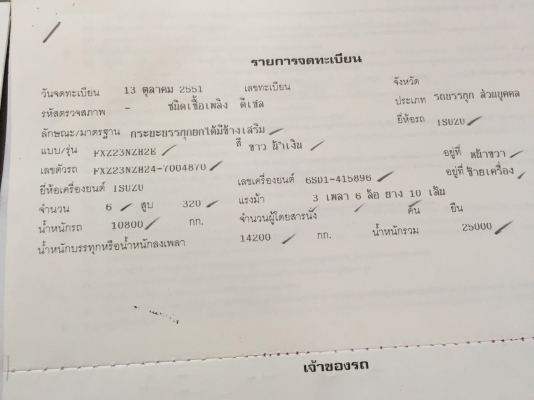 รายการจดทะเบียน
วันจดทะเบียน 13 ตุลาคม 2551 เลขทะเบียน จังหวัด
รหัสตรวจสภาพ - ชนิดเชื้อเพลิง ดีเซล ประเภท รถบรรทุก ส่วนบุคคล
ลักษณะ/มาตรฐาน กระบะบรรทุกยกได้มีข้างเสริม ยี่ห้อรถ ISUZU
แบบ/รุ่น FXZ23NZH2E สี ขาว น้ำเงิน
เลขตัวรถ FXZ23NZH24-7004870 อยู่ที่ หน้าขวา
ยี่ห้อเครื่องยนต์ ISUZU เลขเครื่องยนต์ 6SD1-415896 อยู่ที่ ซ้ายเครื่อง
จำนวน 6 สูบ 320 แรงม้า 3 เพลา 6 ล้อ ยาง 10 เส้น
น้ำหนักรถ 10800 กก. จำนวนผู้โดยสารนั่ง คน ยืน
น้ำหนักบรรทุกหรือน้ำหนักลงเพลา 14200 กก. น้ำหนักรวม 25000
เจ้าของรถ